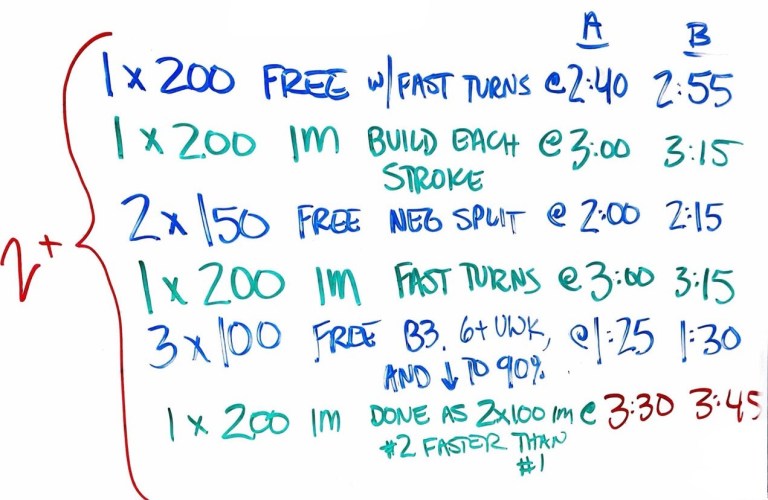 A B
1 x 200 FREE w/ FAST TURNS @ 2:40 2:55
1 x 200 IM BUILD EACH @ 3:00 3:15
STROKE
2 x 150 FREE NEG SPLIT @ 2:00 2:15
2+
1 x 200 IM FAST TURNS @ 3:00 3:15
3 x 100 FREE B3, 6+ UWK, @ 1:25 1:30
AND ↓ TO 90%.
1 x 200 IM DONE AS 2x100 IM @ 3:30 3:45
#2 FASTER THAN
#1